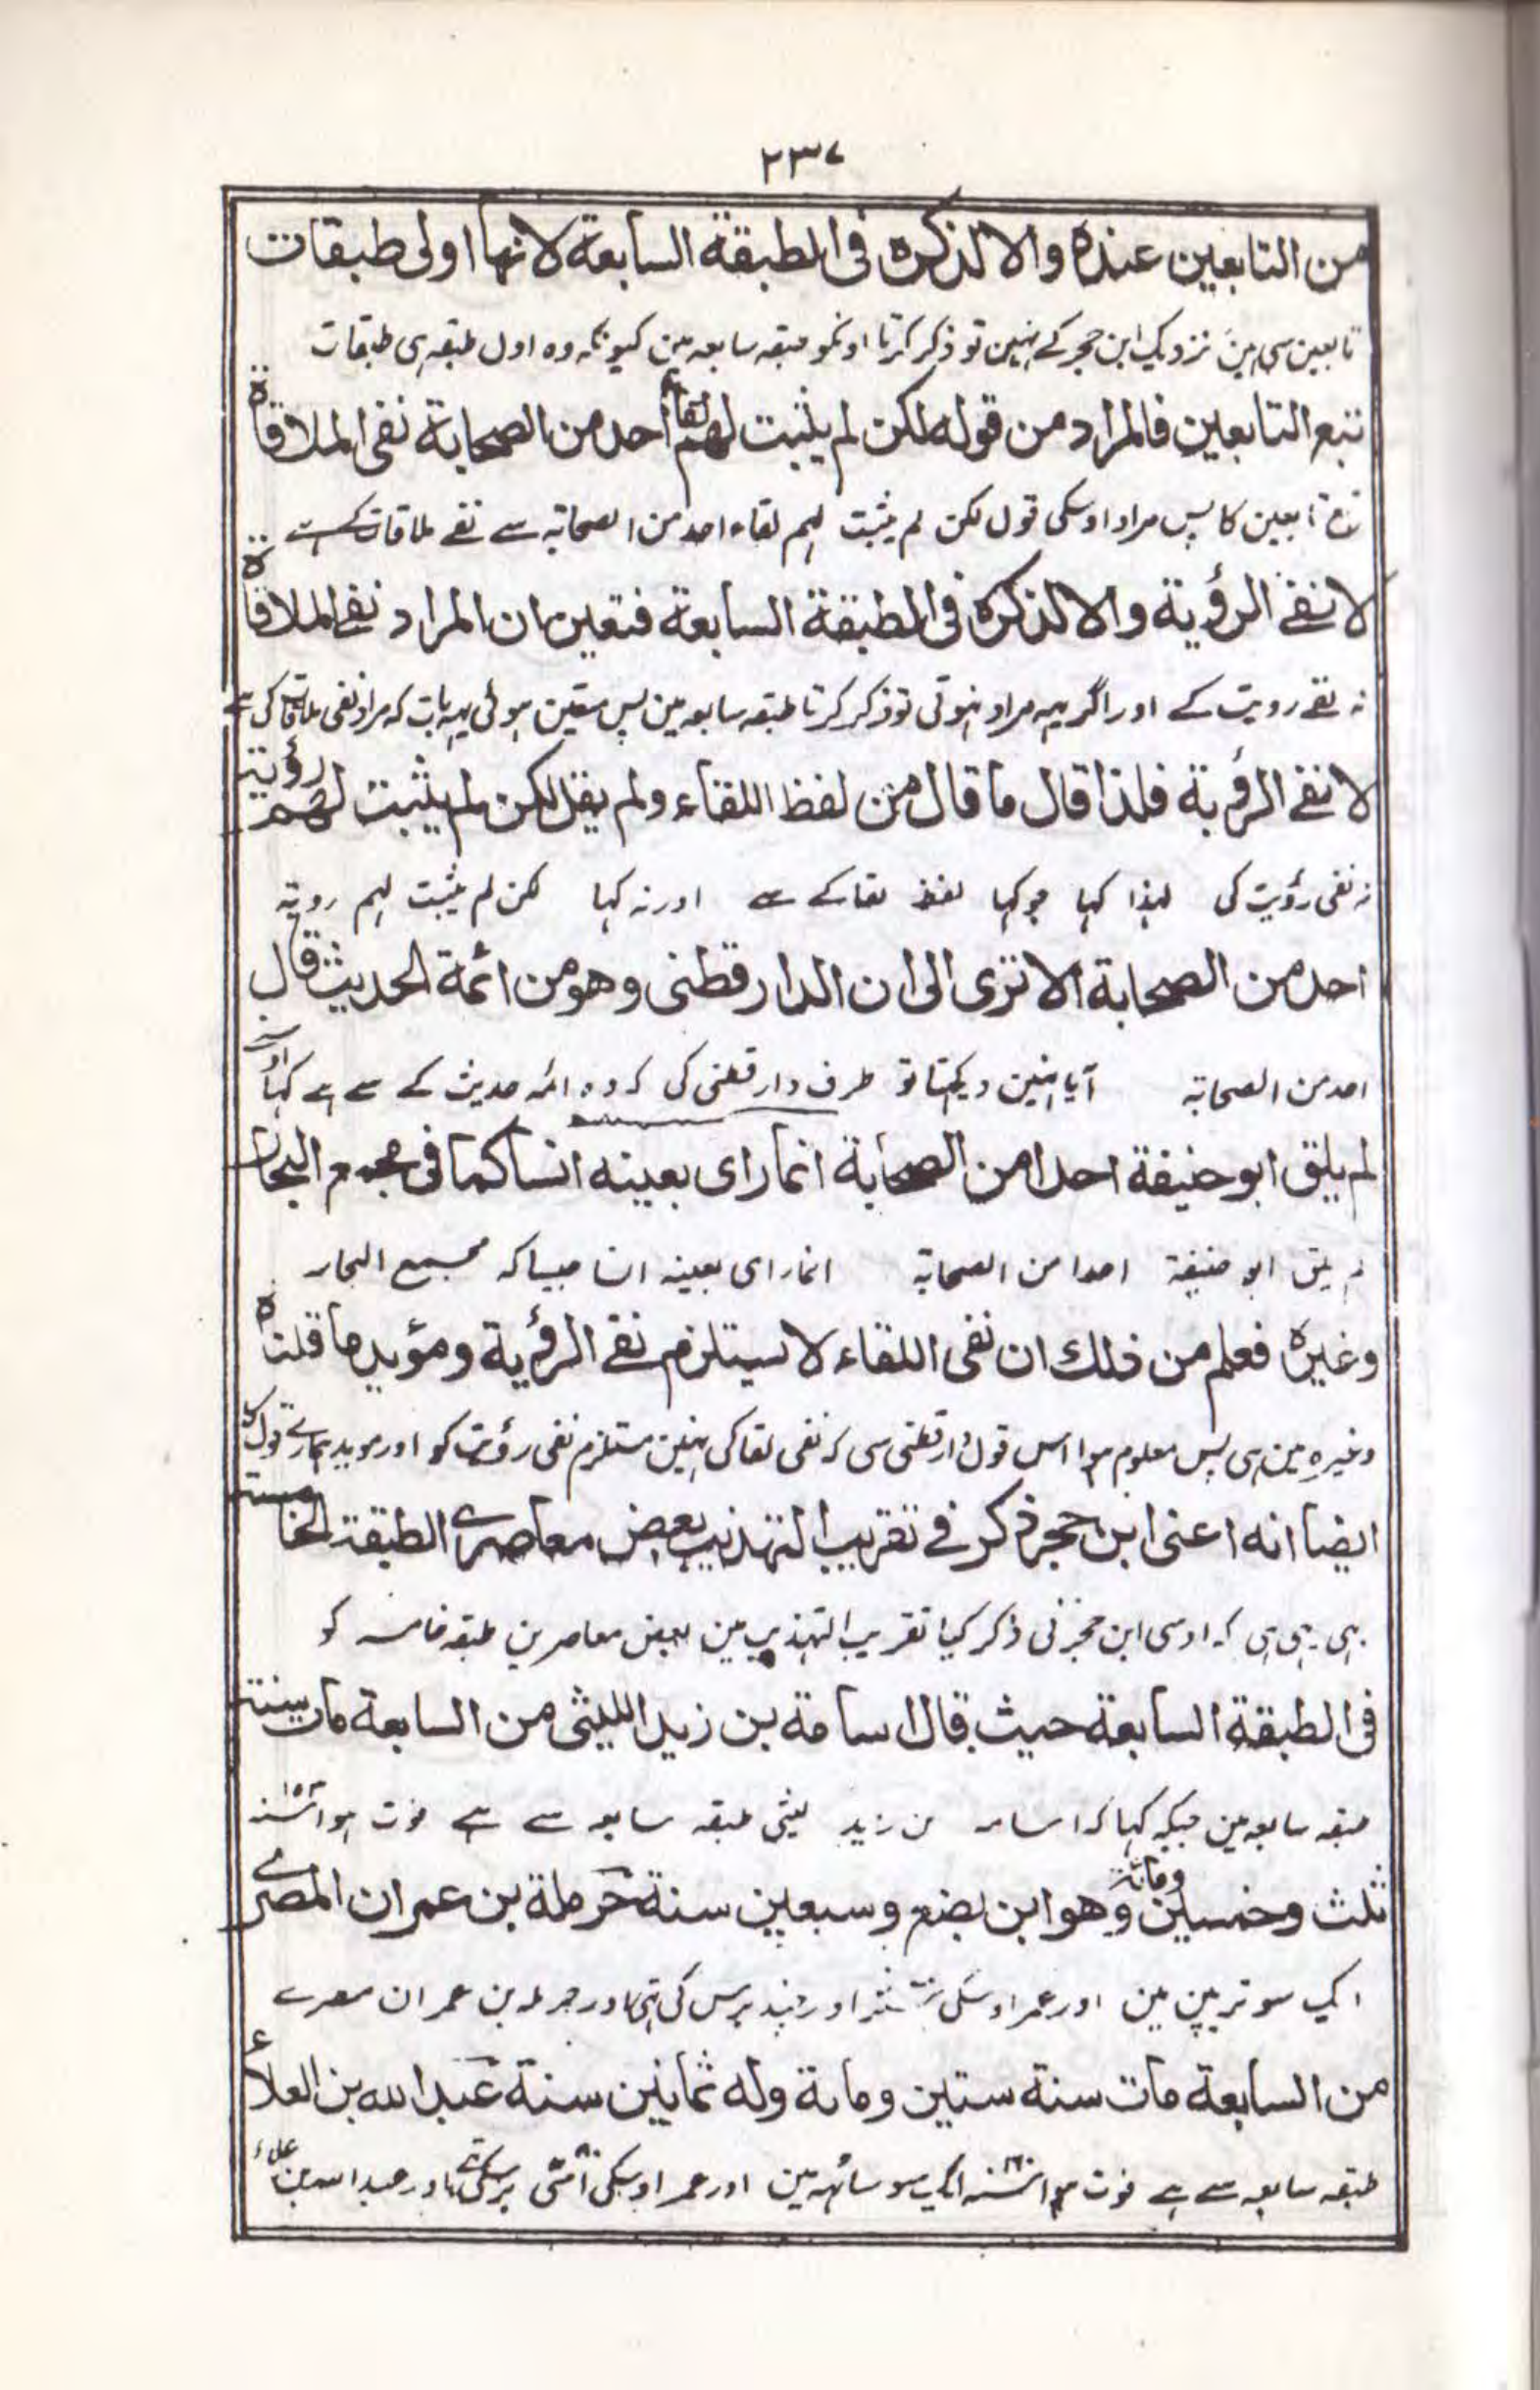 ٢٣٧
من التابعين عنده والا لذكره فى الطبقة السابعة لانها اولى طبقات
تابعین سی ہین نزدیک ابن حجر کے نہین تو ذکر کرتا اونکو طبقہ سابعہ مین کیونکہ وہ اول طبقہ ہی طبقات
تبع التابعين فالمراد من قوله لكن لم يثبت لهم لقاء احد من الصحابة نفى الملاقاة
تبع تابعین کا پس مراد اوسکی قول لکن لم یثبت لہم لقاء احد من الصحابہ سے نفے ملاقات کے ہے
لا نفى الرؤية والا لذكره فى الطبقة السابعة فتعين ان المراد نفى الملاقاة
نہ نفے رویت کے اور اگر یہہ مراد نہوتی تو ذکر کرتا طبقہ سابعہ مین پس متعین ہوئی یہہ بات کہ مراد نفی ملاقات کی ہے
لا نفى الرؤية فلذا قال ما قال من لفظ اللقاء ولم يقل لكن لم يثبت لهم رؤية
نہ نفی رؤیت کی لہذا کہا جو کہا لفظ لقا کے سے اور نہ کہا لکن لم یثبت لہم رویۃ
احد من الصحابة الا ترى الى ان الدارقطنى وهو من ائمة الحديث قال
احد من الصحابۃ آیا نہین دیکہتا تو طرف دارقطنی کی کہ وہ ائمہ حدیث کے سے ہے کہا
لم يلق ابو حنيفة احدا من الصحابة انما راى بعينه انسا كما فى مجمع البحار
لم یلق ابو حنیفۃ احدا من الصحابۃ انما رای بعینہ انسا جیسا کہ مجمع البحار
وغيره فعلم من ذلك ان نفى اللقاء لا يستلزم نفى الرؤية ومؤيد ما قلناه
وغیرہ مین ہی پس معلوم ہوا اس قول دارقطنی سی کہ نفی لقا کی نہین مستلزم نفی رؤیت کو اور موید ہمارے قول کا
ايضا انه اعنى ابن حجر ذكر فى تقريب التهذيب بعض معاصرى الطبقة الخامسة
بہی یہی ہی کہ اوسی ابن حجر نی ذکر کیا تقریب التہذیب مین بعض معاصرین طبقہ خامسہ کو
فى الطبقة السابعة حيث قال اسامة بن زيد الليثى من السابعة مات سنة
طبقہ سابعہ مین جبکہ کہا کہ اسامہ بن زید لیثی طبقہ سابعہ سے ہے فوت ہوا سنہ ١٥٣
ثلث وخمسين ومائة وهو ابن بضع وسبعين سنة حرملة بن عمران المصرى
ایک سو تریپن مین اور عمر اوسکی ستر اور چند برس کی تہی اور حرملہ بن عمران مصرے
من السابعة مات سنة ستين ومائة وله ثمانين سنة عبد الله بن العلاء
طبقہ سابعہ سے ہے فوت ہوا سنہ ١٦٠ ایک سو ساٹہہ مین اور عمر اوسکی اسّی ٨٠ برسکی تہی اور عبد اللہ بن علاء